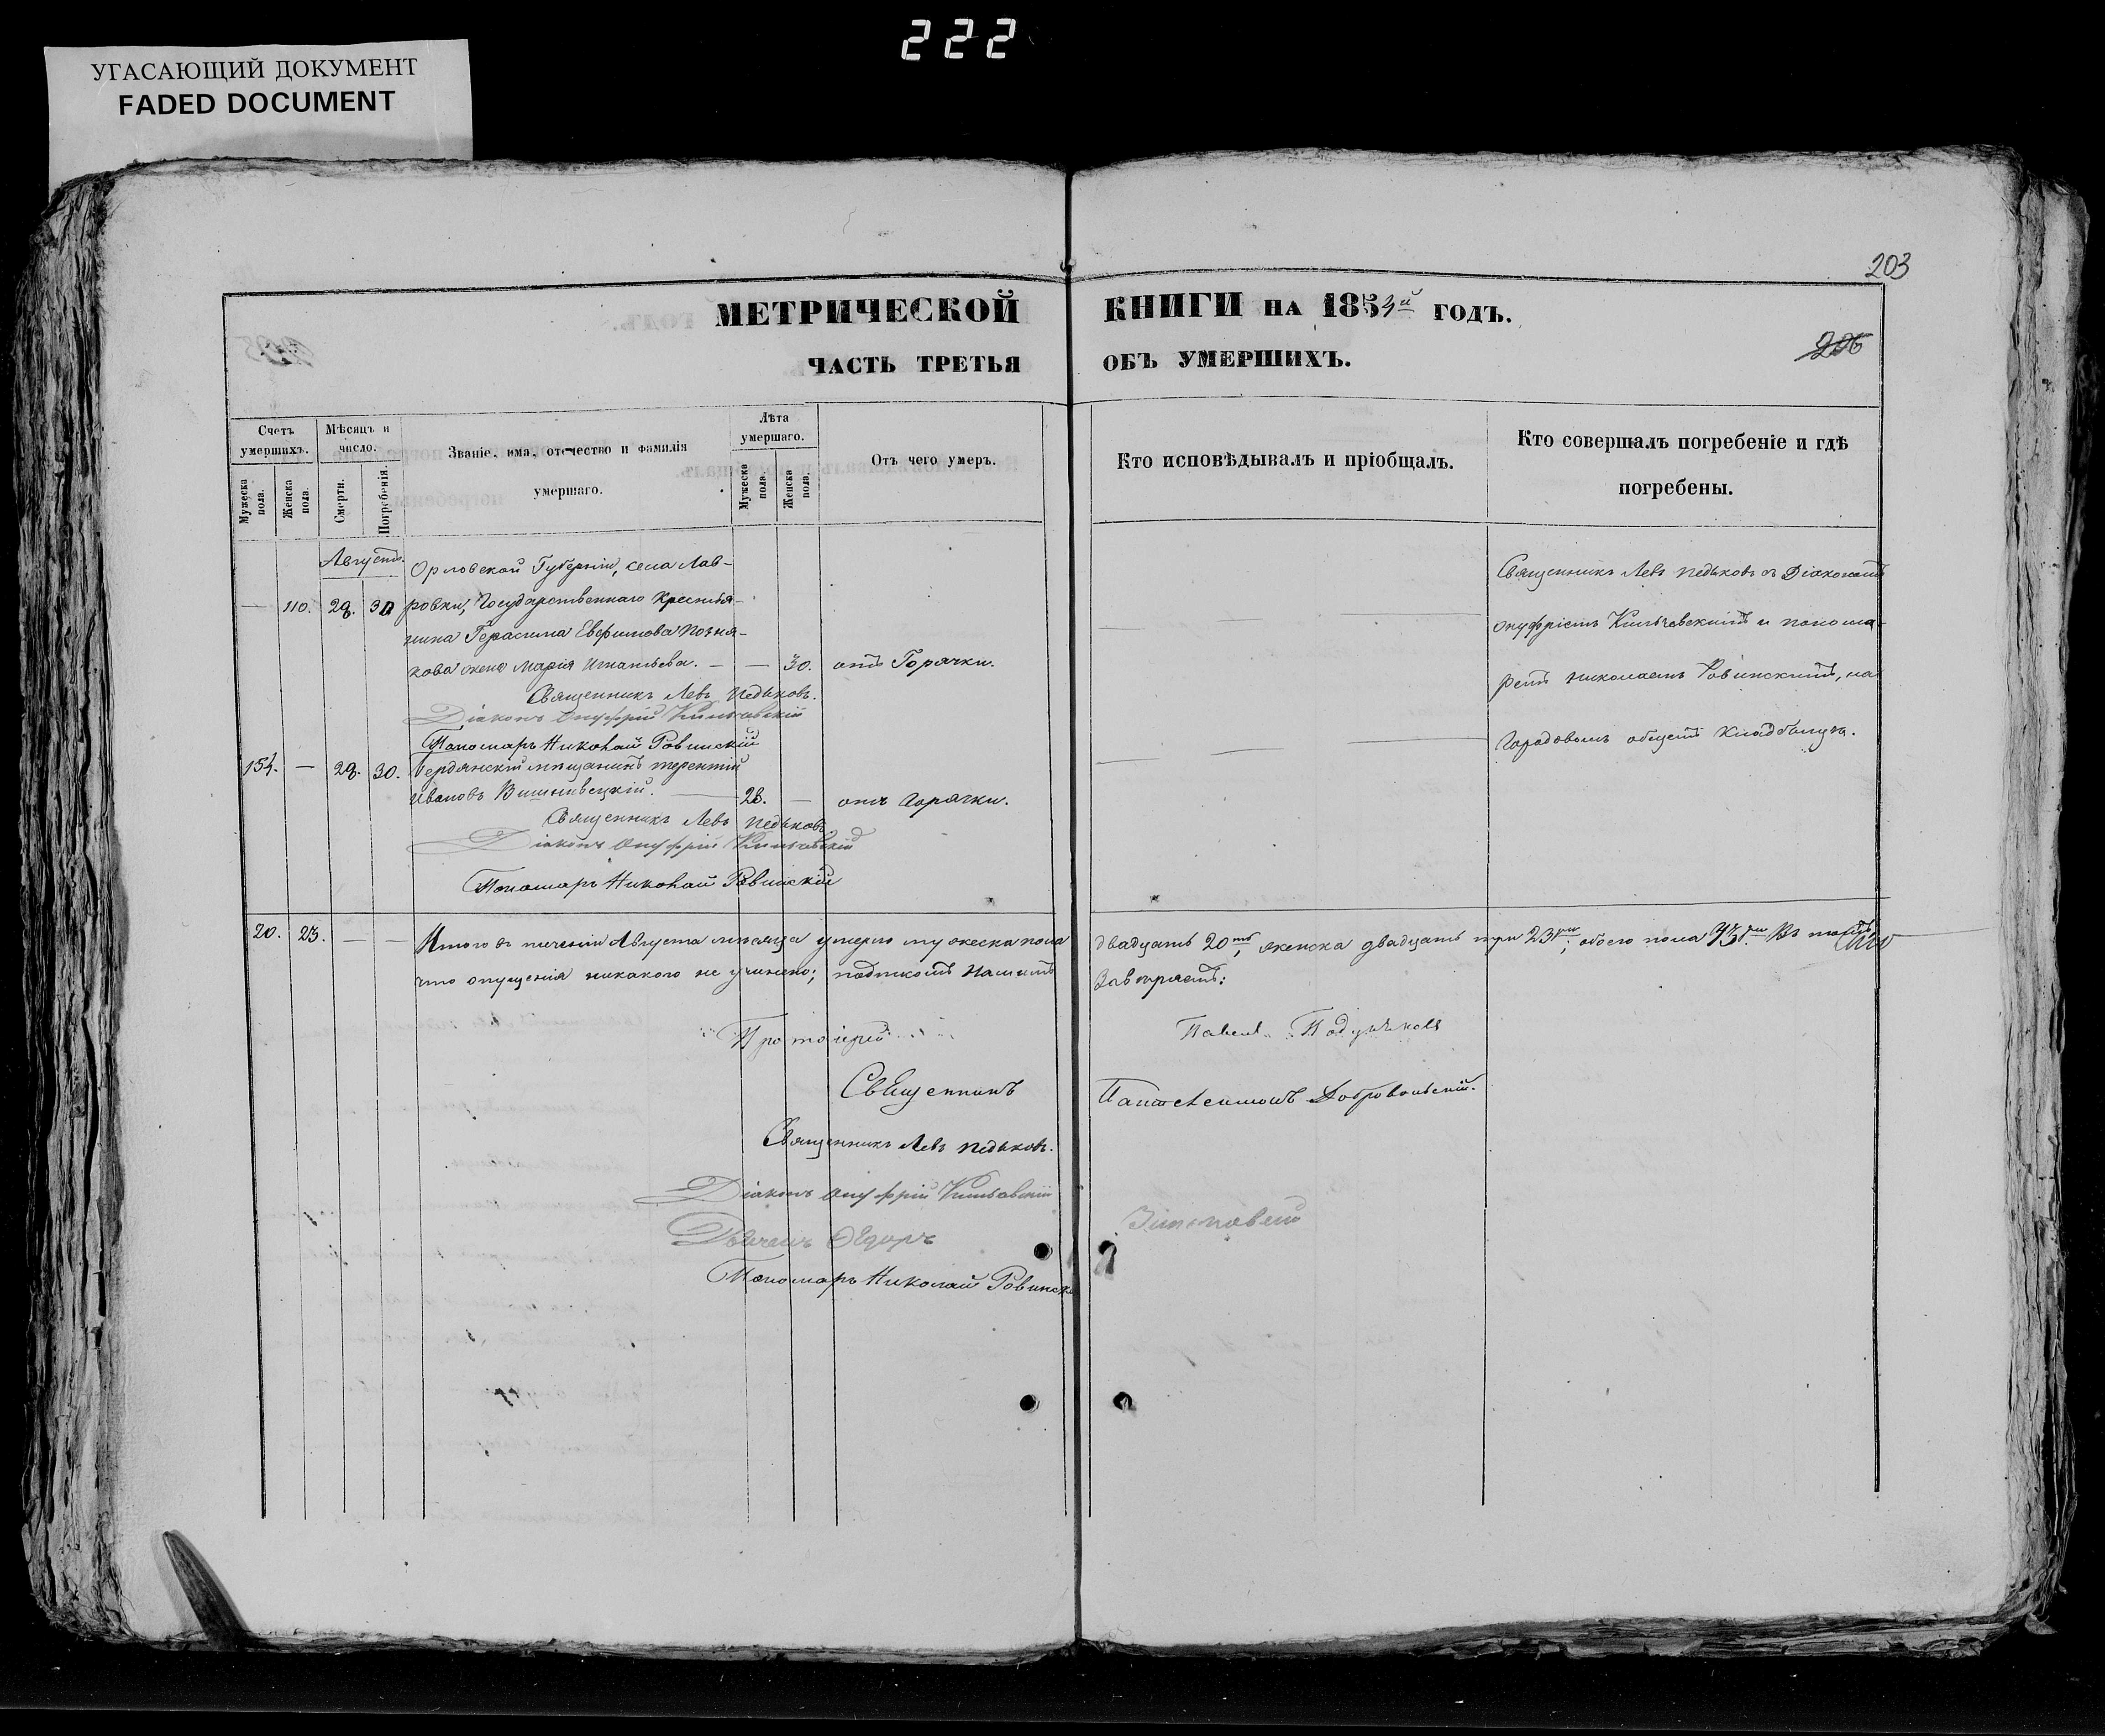 222
УГАСАЮЩИЙ ДОКУМЕНТ
FADED DOCUMENT
203
МЕТРИЧЕСКОЙ КНИГИ НА 1854й ГОДЪ.
206
ЧАСТЬ ТРЕТЬЯ ОБЪ УМЕРШИХЪ.
Счетъ умершихъ.
Мужеска пола.
Женска пола.
Мѣсяцъ и число.
Смерти.
Погребенія.
Званіе, има, отечество и фамилія умершаго.
Лѣта умершаго.
Мужеска пола.
Женска пола.
Отъ чего умеръ.
Кто исповѣдывалъ и пріобщалъ.
Кто совершалъ погребеніе и гдѣ погребены.
Августъ.
Орловской Губерніи, села Лав-
— 110. 28. 30 ровки, Государственнаго Крестья-
нина Герасима Евфимова Позня-
кова жена Марія Игнатьева. — — 30. отъ Горячки.
Священникъ Левъ Педьковъ.
Діаконъ Онуфрій
Пономарь Николай Ровинскій
Священникъ Левъ Педьковъ съ Діакономъ
Онуфріемъ и понома-
ремъ Николаемъ Ровинскимъ, на
Городовомъ общемъ Кладбищѣ.
154. — 28. 30. Бердянскій мѣщанинъ Терентій
Ивановъ Вишнивецкій. 28. — отъ Горячки.
Священникъ Левъ Педьковъ
Діаконъ Онуфрій
Пономарь Николай Ровинскій
20. 23. — — Итого въ теченіи Августа мѣсяца умерло мужеска пола двадцать 20ть, женска двадцать три 23ри; обоего пола 43ри. Въ томъ,
что опущенія никакого не учинено; подписомъ нашимъ Завѣряемъ:
Протоіерей Павелъ
Священникъ Пантелеимонъ Добровольскій.
Священникъ Левъ Педьковъ.
Діаконъ Онуфрій
Дьячекъ Ѳедоръ
Пономарь Николай Ровинск